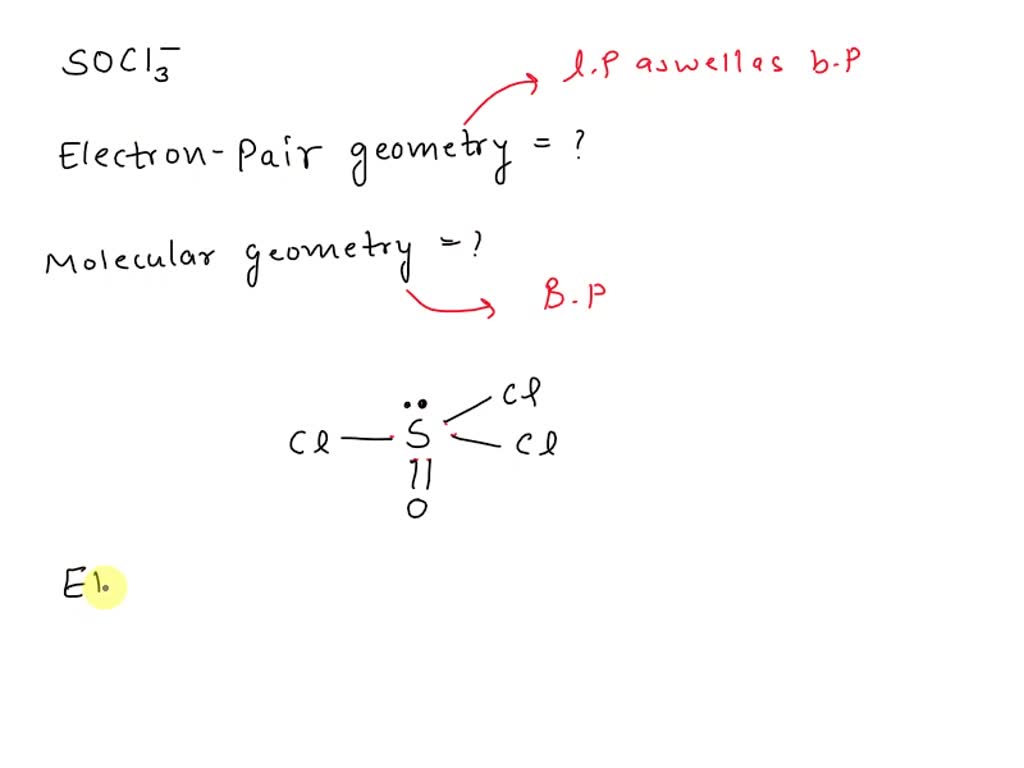 SOCl₃⁻
l.P aswellas b.P
Electron-Pair geometry = ?
Molecular geometry = ?
B.P
Cl
Cl S Cl
O
El